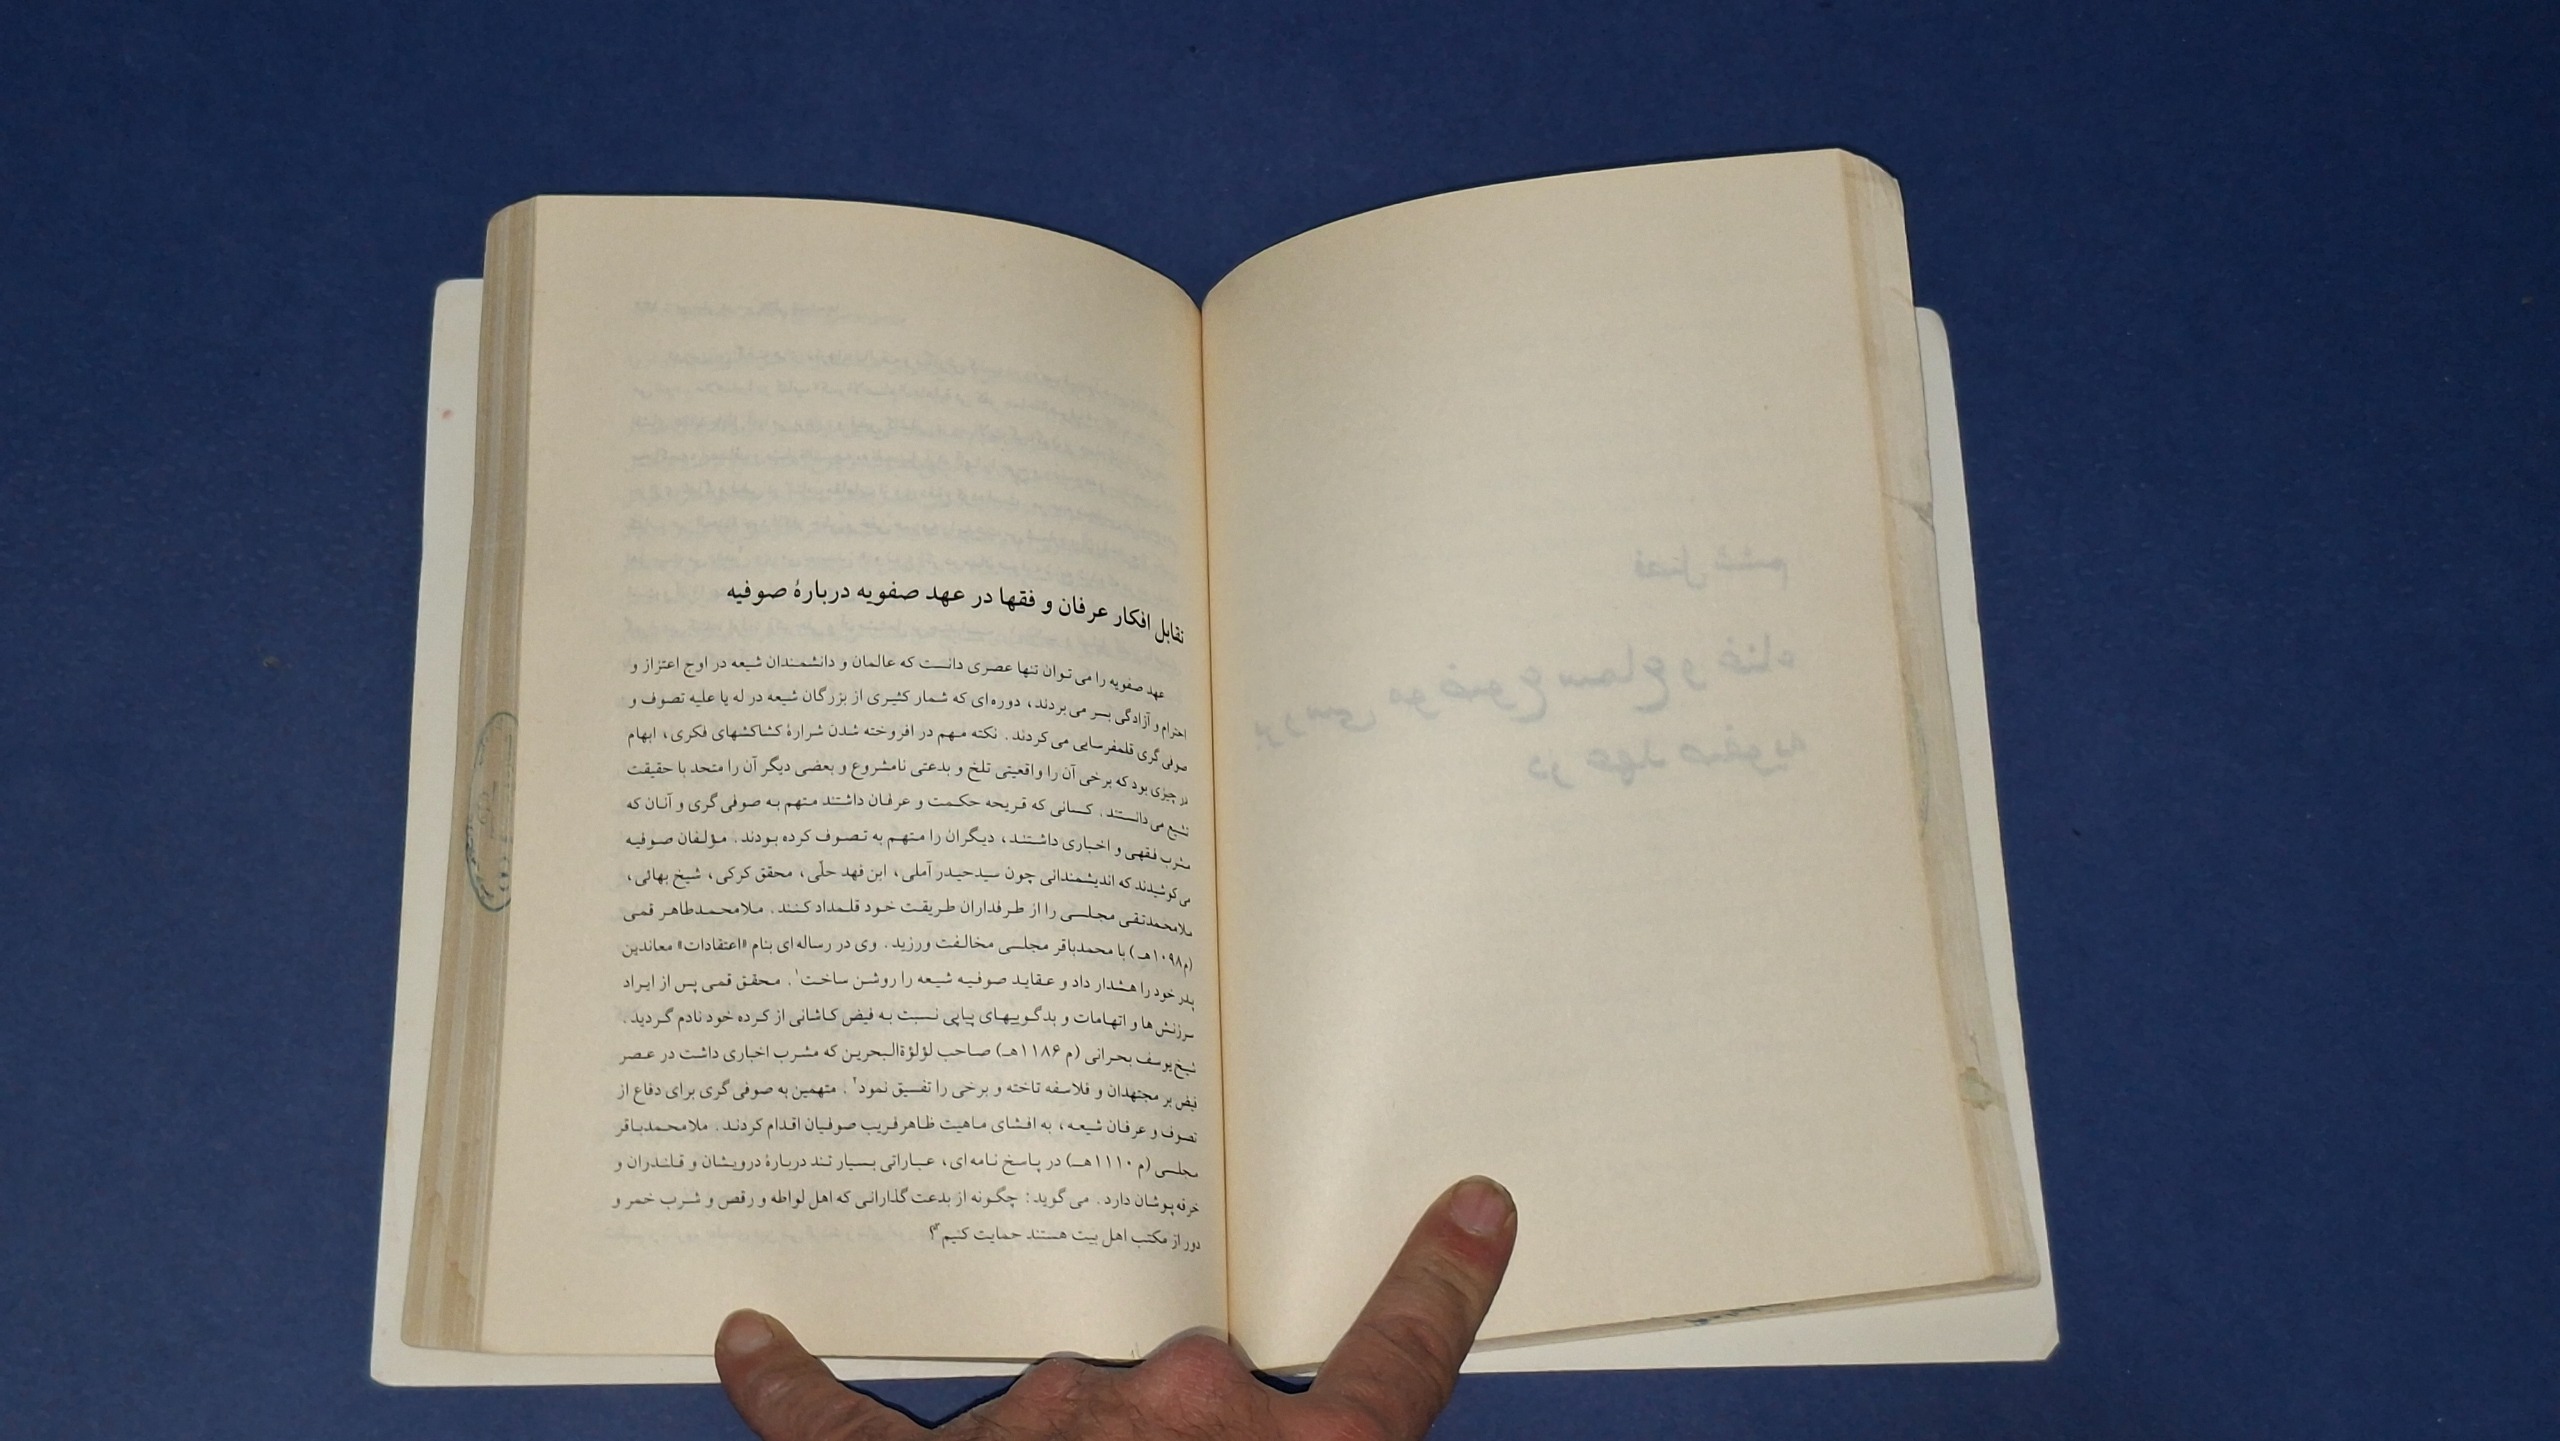 تقابل افکار عرفان و فقها در عهد صفویه دربارهٔ صوفیه
عهد صفویه را می‌توان تنها عصری دانست که عالمان و دانشمندان شیعه در اوج اعتزاز و
احترام و آزادگی بسر می‌بردند، دوره‌ای که شمار کثیری از بزرگان شیعه در له یا علیه تصوف و
صوفی گری قلمفرسایی می‌کردند. نکته مهم در افروخته شدن شرارهٔ کشاکشهای فکری، ابهام
در چیزی بود که برخی آن را واقعیتی تلخ و بدعتی نامشروع و بعضی دیگر آن را متحد با حقیقت
تشیع می‌دانستند. کسانی که قریحه حکمت و عرفان داشتند متهم به صوفی گری و آنان که
مشرب فقهی و اخباری داشتند، دیگران را متهم به تصوف کرده بودند. مؤلفان صوفیه
می‌کوشیدند که اندیشمندانی چون سیدحیدر آملی، ابن فهد حلّی، محقق کرکی، شیخ بهائی،
ملامحمدتقی مجلسی را از طرفداران طریقت خود قلمداد کنند. ملامحمدطاهر قمی
(م۱۰۹۸هـ) با محمدباقر مجلسی مخالفت ورزید. وی در رساله‌ای بنام «اعتقادات» معاندین
پدر خود را هشدار داد و عقاید صوفیه شیعه را روشن ساخت۱. محقق قمی پس از ایراد
سرزنش‌ها و اتهامات و بدگوییهای پیاپی نسبت به فیض کاشانی از کرده خود نادم گردید.
شیخ یوسف بحرانی (م ۱۱۸۶هـ) صاحب لؤلؤةالبحرین که مشرب اخباری داشت در عصر
فیض بر مجتهدان و فلاسفه تاخته و برخی را تفسیق نمود۲. متهمین به صوفی گری برای دفاع از
تصوف و عرفان شیعه، به افشای ماهیت ظاهرفریب صوفیان اقدام کردند. ملامحمدباقر
مجلسی (م ۱۱۱۰هـ) در پاسخ نامه‌ای، عباراتی بسیار تند دربارهٔ درویشان و قلندران و
خرقه‌پوشان دارد. می‌گوید: چگونه از بدعت گذارانی که اهل لواطه و رقص و شرب خمر و
دور از مکتب اهل بیت هستند حمایت کنیم۳؟